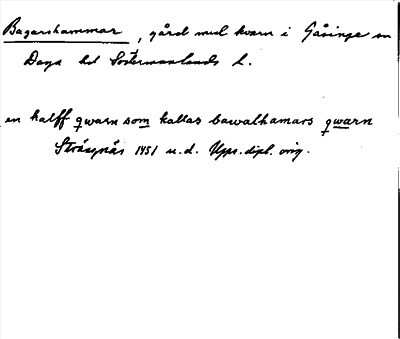 Bagarshammar, gård med kvarn i Gåsinge sn
Daga hd Södermanlands L.
en halff qwarn som kallas bawalhamars qwarn
Strängnäs 1451 u.d. Upps. dipl. orig.